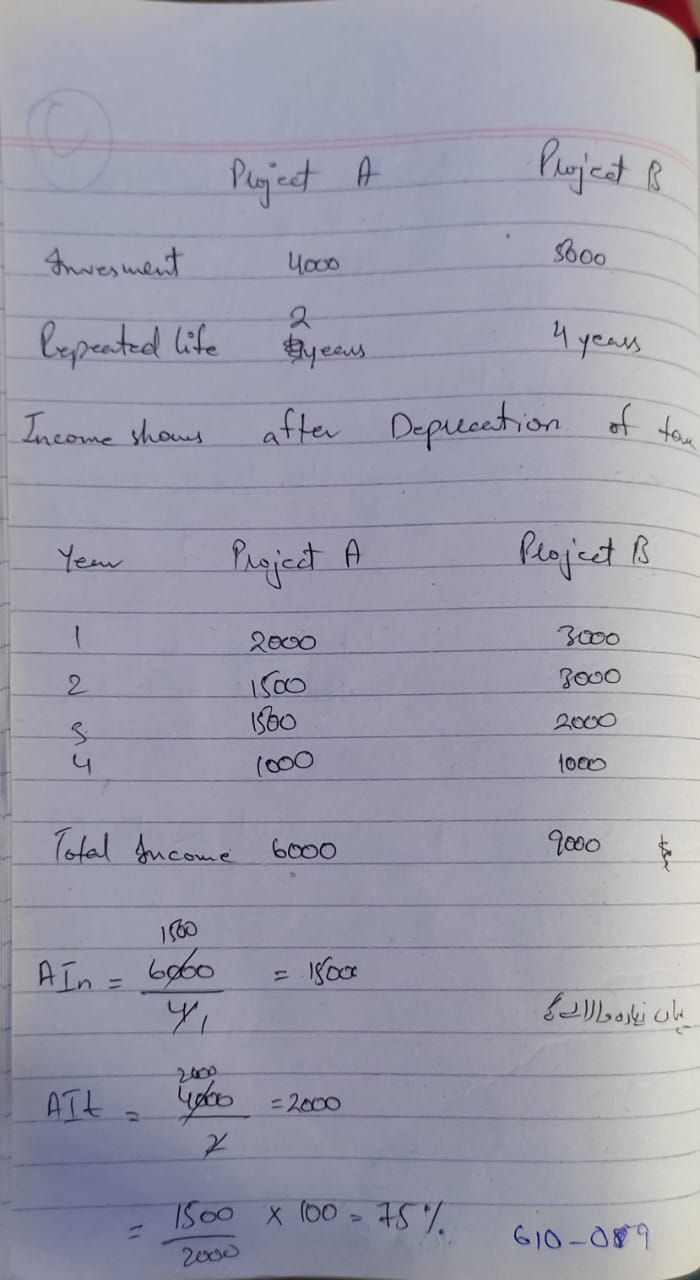 Project A Project B
Invesment 4000 5000
2
Repeated life years 4 years
Income shows after Deprecation of tax
Year Project A Project B
1 2000 3000
2 1500 3000
3 1500 2000
4 1000 1000
Total Income 6000 9000
1500
AIn = 6000 = 1500
4 1
2000
AIt = 4000 = 2000
2
= 1500 × 100 = 75%
2000
610-089